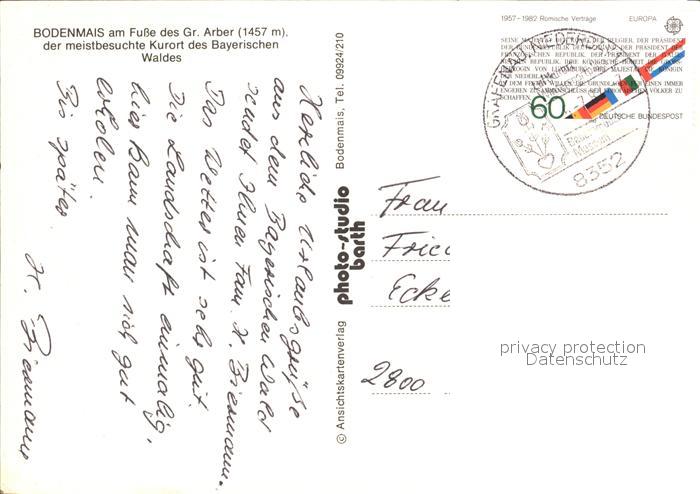 BODENMAIS am Fuße des Gr. Arber (1457 m).
der meistbesuchte Kurort des Bayerischen
Waldes
Herzliche Urlaubsgrüße
aus dem Bayerischen Wald
sendet Ihnen Fam. H. Biermann.
Das Wetter ist sehr gut.
Die Landschaft einmalig,
hier kann man sich gut
erholen.
Bis später
H. Biermann
© Ansichtskartenverlag
photo-studio
barth
Bodenmais, Tel. 09924/210
1957-1982 Römische Verträge
EUROPA
60
DEUTSCHE BUNDESPOST
8352
Frau
Fried
Ecke
2800
privacy protection
Datenschutz